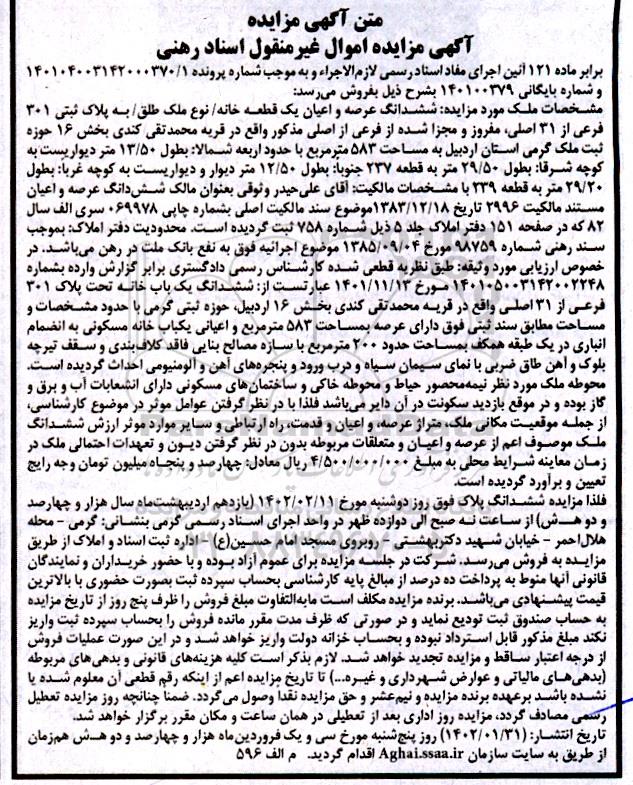 متن آگهی مزایده
آگهی مزایده اموال غیرمنقول اسناد رهنی
برابر ماده ۱۲۱ آئین اجرای مفاد اسناد رسمی لازم‌الاجراء و به موجب شماره پرونده ۱۴۰۱۰۴۰۰۳۱۴۲۰۰۰۳۷۰/۱
و شماره بایگانی ۱۴۰۱۰۰۳۷۹ بشرح ذیل بفروش می‌رسد:
مشخصات ملک مورد مزایده: ششدانگ عرصه و اعیان یک قطعه خانه/ نوع ملک طلق/ به پلاک ثبتی ۳۰۱
فرعی از ۳۱ اصلی، مفروز و مجزا شده از فرعی از اصلی مذکور واقع در قریه محمدتقی کندی بخش ۱۶ حوزه
ثبت ملک گرمی استان اردبیل به مساحت ۵۸۳ مترمربع با حدود اربعه شمالا: بطول ۱۳/۵۰ متر دیواریست به
کوچه شرقا: بطول ۲۹/۵۰ متر به قطعه ۲۳۷ جنوبا: بطول ۱۲/۵۰ متر دیوار و دیواریست به کوچه غربا: بطول
۲۹/۲۰ متر به قطعه ۲۳۹ با مشخصات مالکیت: آقای علی‌حیدر وثوقی بعنوان مالک شش‌دانگ عرصه و اعیان
مستند مالکیت ۲۹۹۶ تاریخ ۱۳۸۳/۱۲/۱۸موضوع سند مالکیت اصلی بشماره چاپی ۰۶۹۹۷۸ سری الف سال
۸۲ که در صفحه ۱۵۱ دفتر املاک جلد ۵ ذیل شماره ۷۵۸ ثبت گردیده است. محدودیت دفتر املاک: بموجب
سند رهنی شماره ۹۸۷۵۹ مورخ ۱۳۸۵/۰۹/۰۴ موضوع اجرائیه فوق به نفع بانک ملت در رهن می‌باشد. در
خصوص ارزیابی مورد وثیقه: طبق نظریه قطعی شده کارشناس رسمی دادگستری برابر گزارش وارده بشماره
۱۴۰۱۰۵۰۰۳۱۴۲۰۰۲۲۴۸ مورخ ۱۴۰۱/۱۱/۱۳ عبارتست از: ششدانگ یک باب خانه تحت پلاک ۳۰۱
فرعی از ۳۱ اصلی واقع در قریه محمدتقی کندی بخش ۱۶ اردبیل، حوزه ثبتی گرمی با حدود مشخصات و
مساحت مطابق سند ثبتی فوق دارای عرصه بمساحت ۵۸۳ مترمربع و اعیانی یکباب خانه مسکونی به انضمام
انباری در یک طبقه همکف بمساحت حدود ۲۰۰ مترمربع با سازه مصالح بنایی فاقد کلاف‌بندی و سقف تیرچه
بلوک و آهن طاق ضربی با نمای سیمان سیاه و درب ورود و پنجره‌های آهن و آلومنیومی احداث گردیده است.
محوطه ملک مورد نظر نیمه‌محصور حیاط و محوطه خاکی و ساختمان‌های مسکونی دارای انشعابات آب و برق و
گاز بوده و در موقع بازدید سکونت در آن دایر می‌باشد فلذا با در نظر گرفتن عوامل موثر در موضوع کارشناسی،
از جمله موقعیت مکانی ملک، متراژ عرصه، و اعیان و قدمت، راه ارتباطی و سایر موارد موثر ارزش ششدانگ
ملک موصوف اعم از عرصه و اعیان و متعلقات مربوطه بدون در نظر گرفتن دیون و تعهدات احتمالی ملک در
زمان معاینه شرایط محلی به مبلغ ۴/۵۰۰/۰۰۰/۰۰۰ ریال معادل: چهارصد و پنجاه میلیون تومان وجه رایج
تعیین و برآورد گردیده است.
فلذا مزایده ششدانگ پلاک فوق روز دوشنبه مورخ ۱۴۰۲/۰۲/۱۱ (یازدهم اردیبهشت‌ماه سال هزار و چهارصد
و دو هـ.ش) از ساعت نه صبح الی دوازده ظهر در واحد اجرای اسناد رسمی گرمی بنشانی: گرمی – محله
هلال‌احمر – خیابان شهید دکتربهشتی – روبروی مسجد امام حسین(ع) – اداره ثبت اسناد و املاک از طریق
مزایده به فروش می‌رسد. شرکت در جلسه مزایده برای عموم آزاد بوده و با حضور خریداران و نمایندگان
قانونی آنها منوط به پرداخت ده درصد از مبالغ پایه کارشناسی بحساب سپرده ثبت بصورت حضوری با بالاترین
قیمت پیشنهادی می‌باشد. برنده مزایده مکلف است مابه‌التفاوت مبلغ فروش را ظرف پنج روز از تاریخ مزایده
به حساب صندوق ثبت تودیع نماید و در صورتی که ظرف مدت مقرر مانده فروش را بحساب سپرده ثبت واریز
نکند مبلغ مذکور قابل استرداد نبوده و بحساب خزانه دولت واریز خواهد شد و در این صورت عملیات فروش
از درجه اعتبار ساقط و مزایده تجدید خواهد شد. لازم بذکر است کلیه هزینه‌های قانونی و بدهی‌های مربوطه
(بدهی‌های مالیاتی و عوارض شهرداری و غیره...) تا تاریخ مزایده اعم از اینکه رقم قطعی آن معلوم شده یا
نشده باشد برعهده برنده مزایده و نیم‌عشر و حق مزایده نقدا وصول می‌گردد. ضمنا چنانچه روز مزایده تعطیل
رسمی مصادف گردد، مزایده روز اداری بعد از تعطیلی در همان ساعت و مکان مقرر برگزار خواهد شد.
تاریخ انتشار: (۱۴۰۲/۰۱/۳۱) روز پنج‌شنبه مورخ سی و یک فروردین‌ماه هزار و چهارصد و دو هـ.ش همزمان
از طریق به سایت سازمان Aghai.ssaa.ir اقدام گردید. م الف ۵۹۶